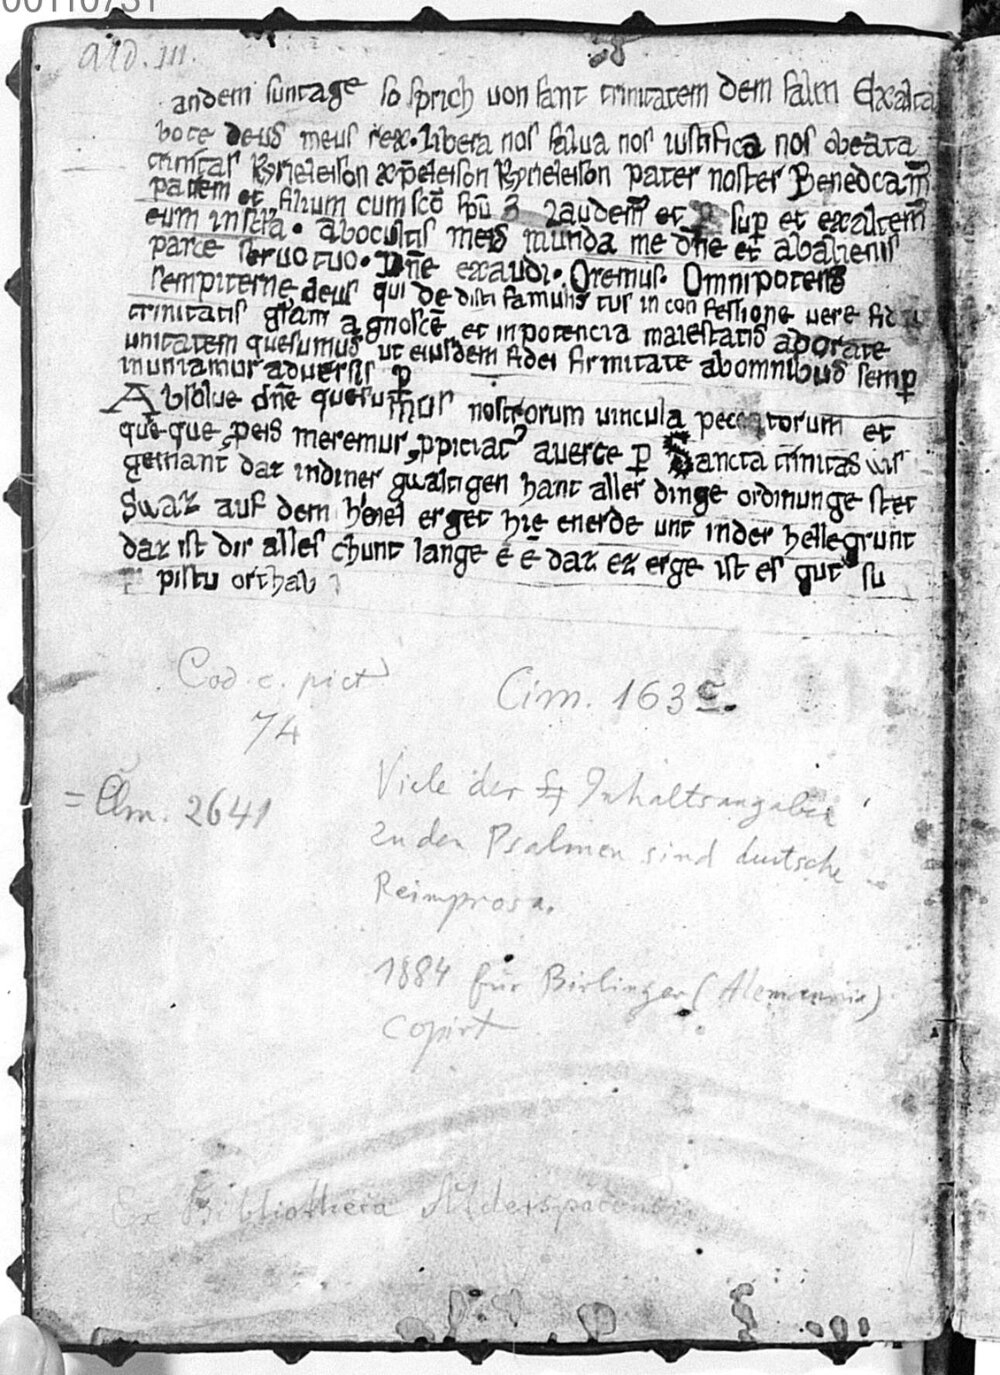 00110731
Ald. III.
andem suntage so sprich von sant trinitatem dem salm Exalta
bo te deus meus rex. Libera nos salua nos iustifica nos o beata
trinitas Kyrieleison xp̄eleison Kyrieleison pater noster Benedcam̄
patrem et filium cum sc̄o sp̄u laudem̄ et sup et exaltem̄
eum in sc̄la. ab ocultis meis munda me dn̄e et ab alienis
parce seruo tuo. Dn̄e exaudi. Oremus. Omnipotens
sempiterne deus qui dedisti famulis tuis in confessione uere fid
trinitatis gl̄am agnosce et in potencia maiestatis adorare
unitatem quesumus ut eiusdem fidei firmitate ab omnibus semp
muniamur aduersis p
Absolue dn̄e quesumus nostrorum uincula peccatorum et
que que p eis meremur, ppiciat' auerte p Sancta trinitas wis
gemant daz in diner gwaltigen hant aller dinge ordinunge stet
Swaz auf dem himel erget hie enerde unt in der helle grunt
daz ist dir alles chunt lange e e daz ez erge ist es gut su
pistu
Cod. c. pict
74
Cim. 163 c.
= Clm. 2641
Viele der Inhaltsangaben
zu den Psalmen sind deutsche
Reimprosa.
1884 für Birlinger (Alemannia)
copirt
Ex Bibliotheca Alderspacensi